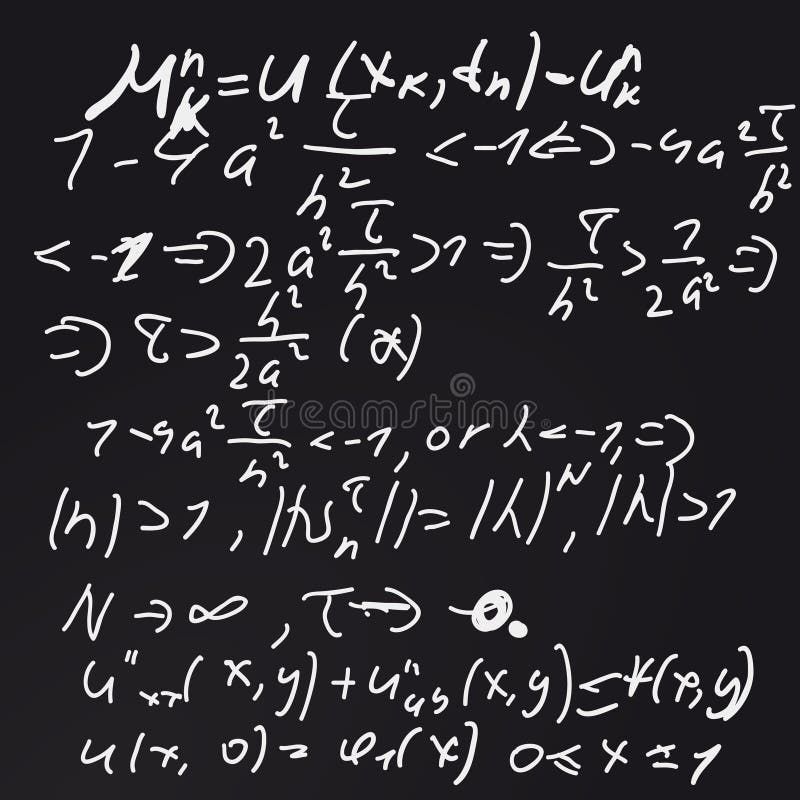 μⁿₖ = u (xₖ, tₙ) - uⁿₖ
1 - 4a² τ/h² < -1 <=> -4a² τ/h²
< -2 => 2a² τ/h² > 1 => τ/h² > 1/2a² =>
=> τ > h²/2a² (α)
1 - 4a² τ/h² < -1, or λ < -1, =>
|λ| > 1, = |λ|ᴺ, |λ| > 1
N → ∞, τ → 0.
u" (x, y) + u" (x, y) (x, y)
u(x, 0) = φ₁(x) 0 ≤ x ≤ 1
dreamstime.com